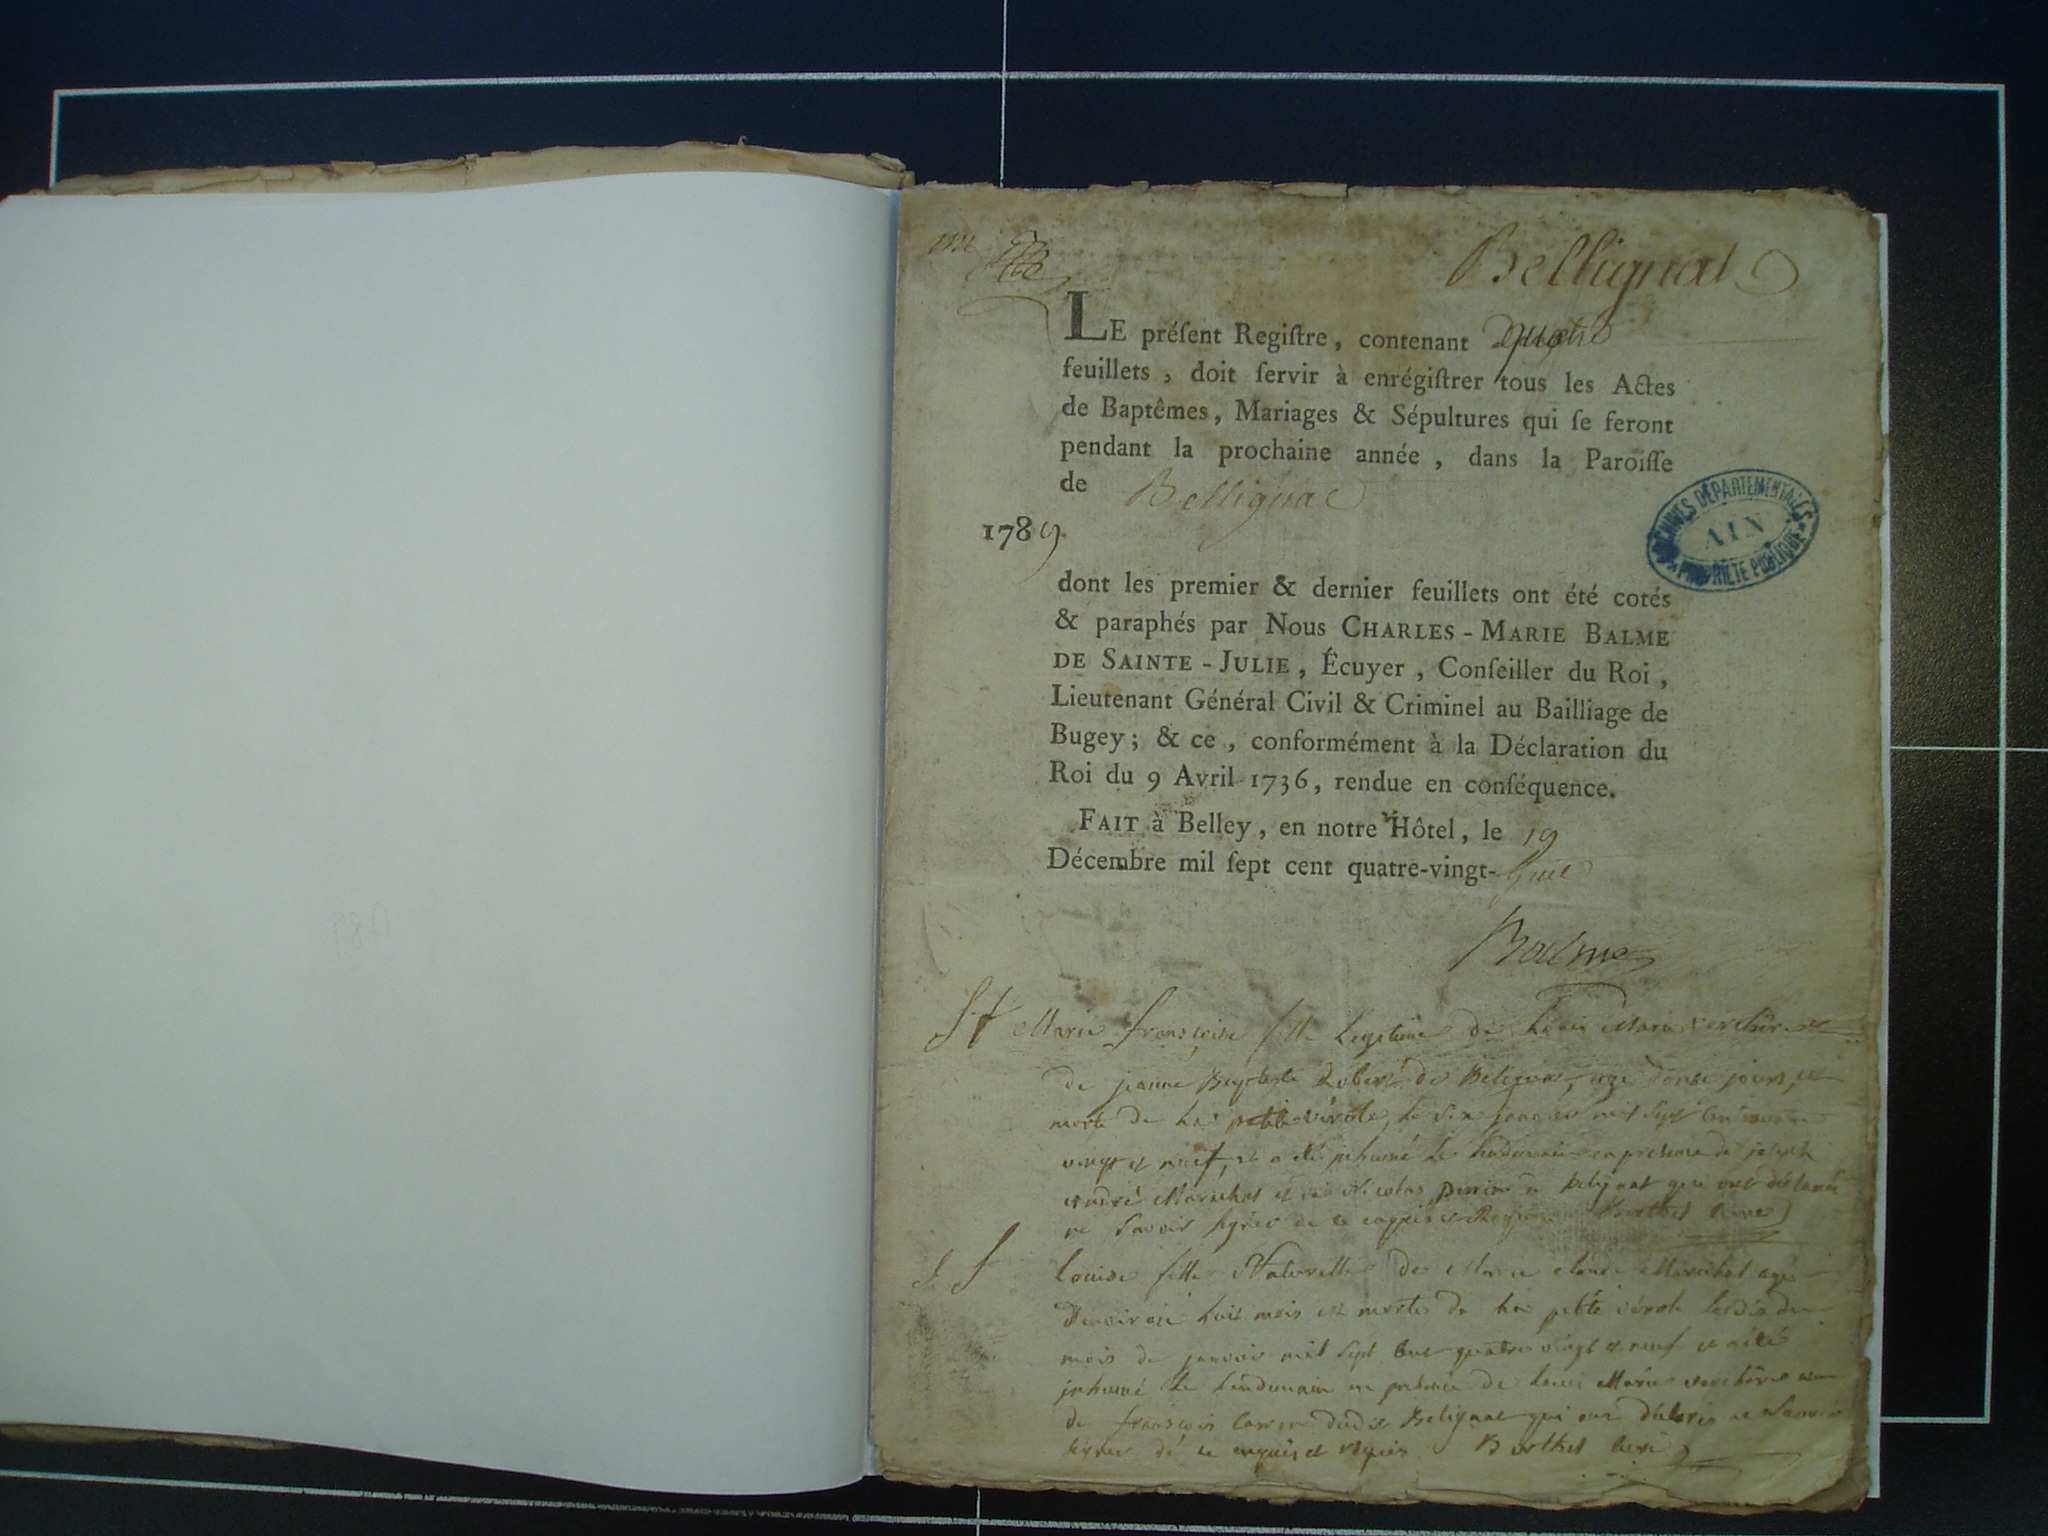 Bellignat
LE préſent Regiſtre, contenant quatre
feuillets, doit ſervir à enrégiſtrer tous les Actes
de Baptêmes, Mariages & Sépultures qui ſe feront
pendant la prochaine année, dans la Paroiſſe
de Bellignat
1789.
ARCHIVES DÉPARTEMENTALES
AIN
PROPRIÉTÉ PUBLIQUE
dont les premier & dernier feuillets ont été cotés
& paraphés par Nous CHARLES-MARIE BALME
DE SAINTE-JULIE, Écuyer, Conſeiller du Roi,
Lieutenant Général Civil & Criminel au Bailliage de
Bugey; & ce, conformément à la Déclaration du
Roi du 9 Avril 1736, rendue en conſéquence.
FAIT à Belley, en notre Hôtel, le 19
Décembre mil ſept cent quatre-vingt-huit
Balme
Marie françoise fille Legitime de Louis Marie verchère et
de jeanne Baptiste de Belignat, age donse jours, est
morte de la petite vérole, le six janvier mil sept cent
vingt et neuf, et a été inhumé le lendemain en présence de joseph
andré Maréchal et de Nicolas perrin de Belignat qui ont déclaré
ne savoir signer de ce enquis et Requis Berthet curé
S Louise fille Naturelle de Marie claude Maréchal agé
denviron huit mois est morte de la petite vérole le dix du
mois de janvier mil sept cent quatre vingt et neuf et a été
inhumé le lendemain en présence de Louis Marie verchère et
de françois dudit Belignat qui ont déclaré ne savoir
signer de ce enquis et requis Berthet curé